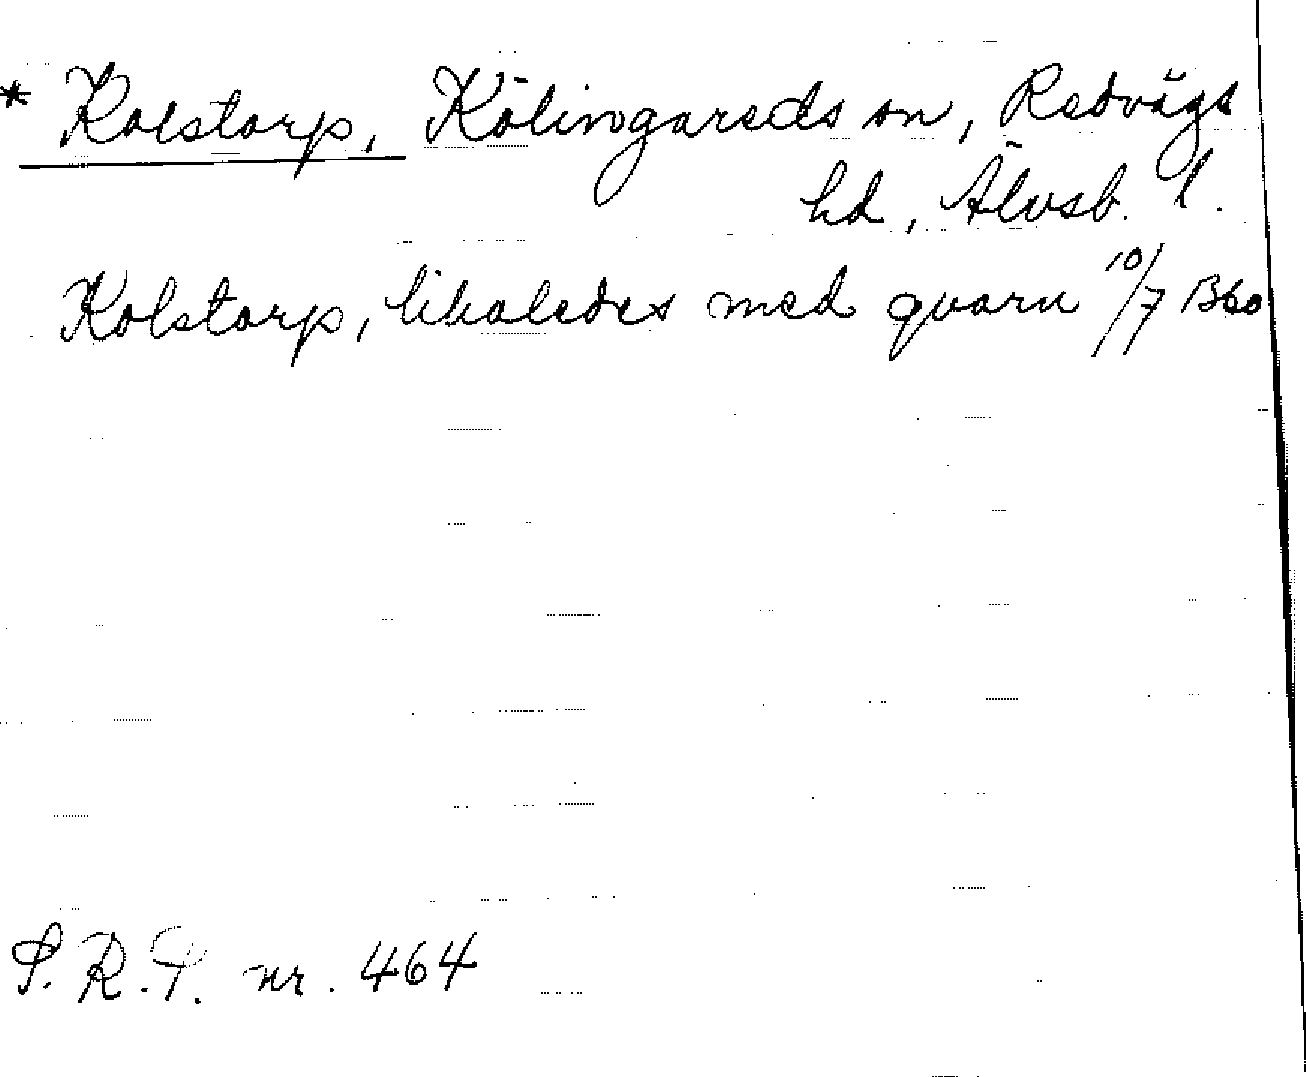 * Kolstorp, Kölingareds sn, Redvägs
hd, Älvsb. l.
Kolstorp, likaledes med qvarn 10/7 1360
S. R. P. nr. 464